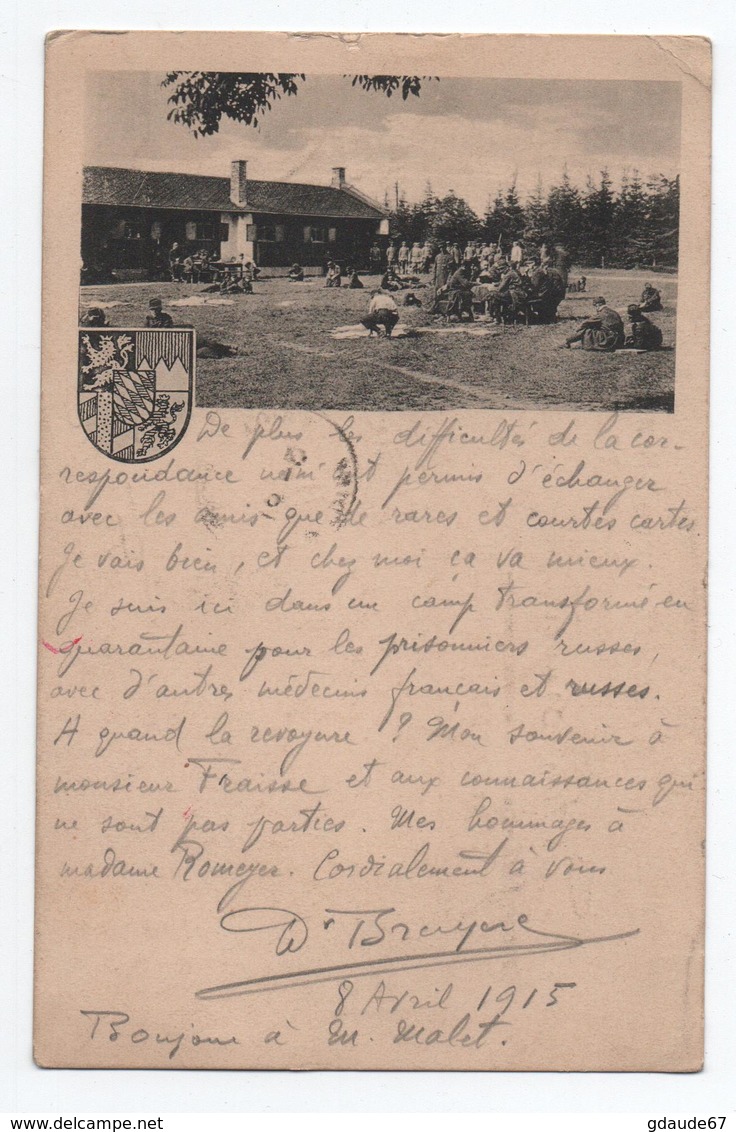 De plus les difficultés de la cor-
respondance m'ont permis d'échanger
avec les amis que de rares et courtes cartes
Je vais bien, et chez moi ça va mieux.
Je suis ici dans un camp transformé en
quarantaine pour les prisonniers russes,
avec d'autres médecins français et russes.
A quand la revoyure ? Mon souvenir à
monsieur Fraisse et aux connaissances qui
ne sont pas parties. Mes hommages à
madame Romeyer. Cordialement à vous
Dr Bruyere
8 Avril 1915
Bonjour à M. Malet.
gdaude67